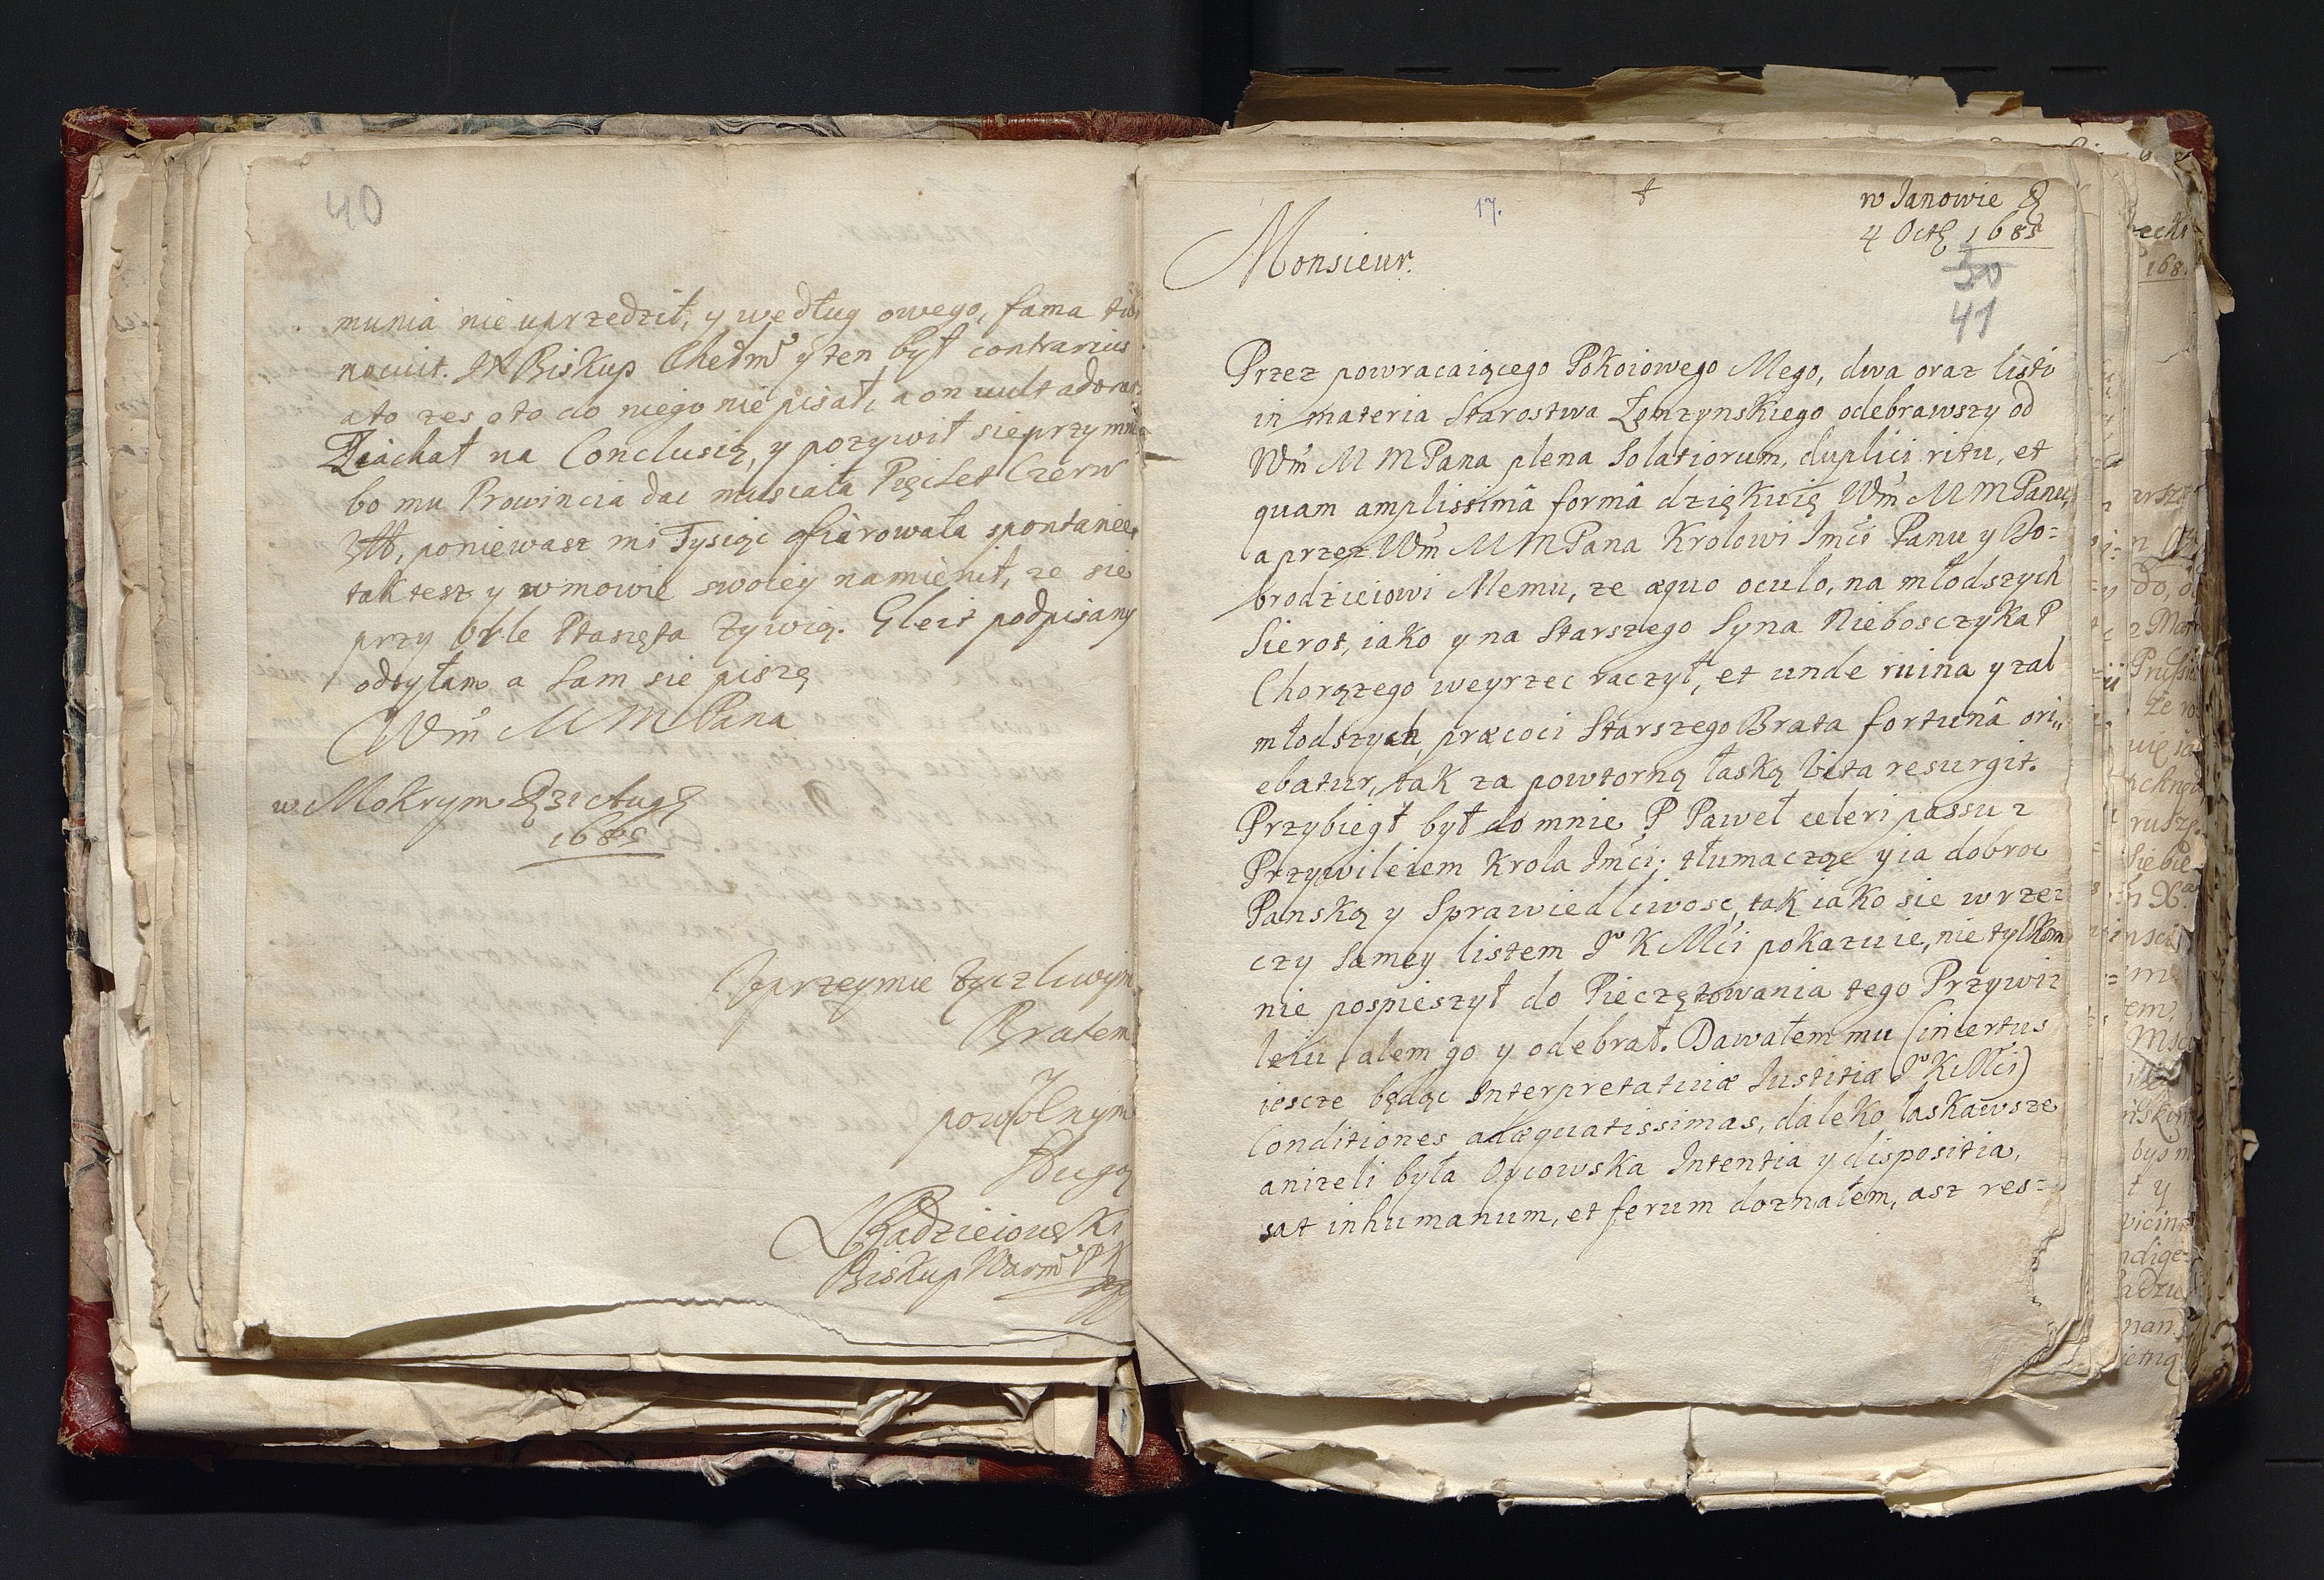 40
munia nie uprzedził, y według owego, fama tibi
nocuit. JX Biskup Chełm͠ y ten był contrarius
a to zes o to do niego nie pisał, a on vult adorari
Ziachał na Conclusią, y pozywił sie przy mnie
bo mu Prowincia dac musiała Pięcset Czerw
Złł, poniewasz mi Tysiąc ofiarowała spontanee,
tak tesz y w mowie swoiey namienił, ze sie
przy Orle Ptaszęta Zywią. Gleit podpisany
odsyłam a Sam sie piszę
Wm̃ M M Pana
w Mokrym D 31 Aug
1685
Uprzeymie życzliwym
Bratem
y
powolnym
Sługą
Radzieiowski
Biskup Warm PK
mpp
17.
w Janowie D
4 Octb 1685
30
41
Monsieur.
Przez powracaiącego Pokoiowego Mego, dwa oraz listy
in materia Starostwa Łomzynskiego odebrawszy od
Wm̃ M M Pana plena Solatiorum, duplici ritu, et
quam amplissimâ formâ dziękuię Wm̃ M M Panu,
a przez Wm̃ M M Pana Krolowi Jmći Panu y Do=
brodzieiowi Memu, ze æquo oculo, na młodszych
Sierot, iako y na Starszego Syna Nieboszczyka P
Chorązego weyrzec raczył, et unde ruina y zal
młodszych, præcoci Starszego Brata fortunâ ori„
ebatur, tak za powtorną łaską Vita resurgit.
Przybiegł był do mnie P Paweł celeri passu z
Przywileiem Krola Jmći; tłumacząc y ia dobroc
Panską y Sprawiedliwosc, tak iako sie w rze=
czy Samey listem J K Mći pokazuie, nie tylkom
nie pospieszył do Pieczętowania tego Przywi=
leiu, alem go y odebrał. Dawałem mu (incertus
iescze będąc Interpretativæ Justitiæ J K Mći)
Conditiones adæquatissimas, daleko łaskawsze
anizeli była Oycowska Intentia y dispositia,
sat inhumanum, et ferum doznałem, asz res=